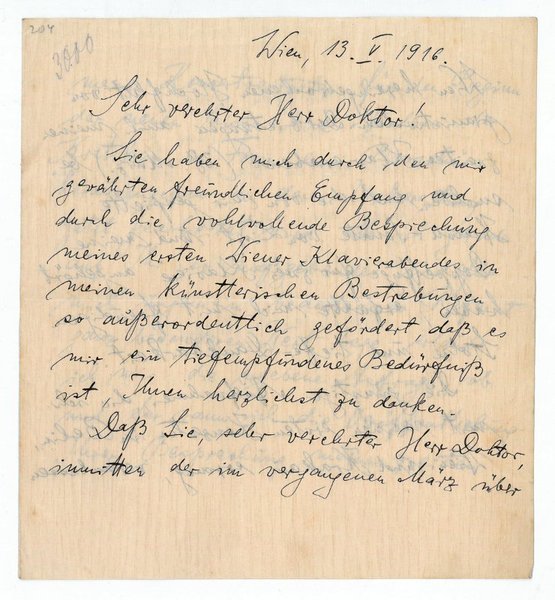 204
3010
Wien, 13. V. 1916.
Sehr verehrter Herr Doktor!
Sie haben mich durch den mir
gewährten freundlichen Empfang und
durch die wohlvollende Besprechung
meines ersten Wiener Klavierabendes in
meinen künstlerischen Bestrebungen
so außerordentlich gefördert, daß es
mir ein tiefempfundenes Bedürfniß
ist, Ihnen herzlichst zu danken.
Daß Sie, sehr verehrter Herr Doktor,
inmitten der im vergangenen März über